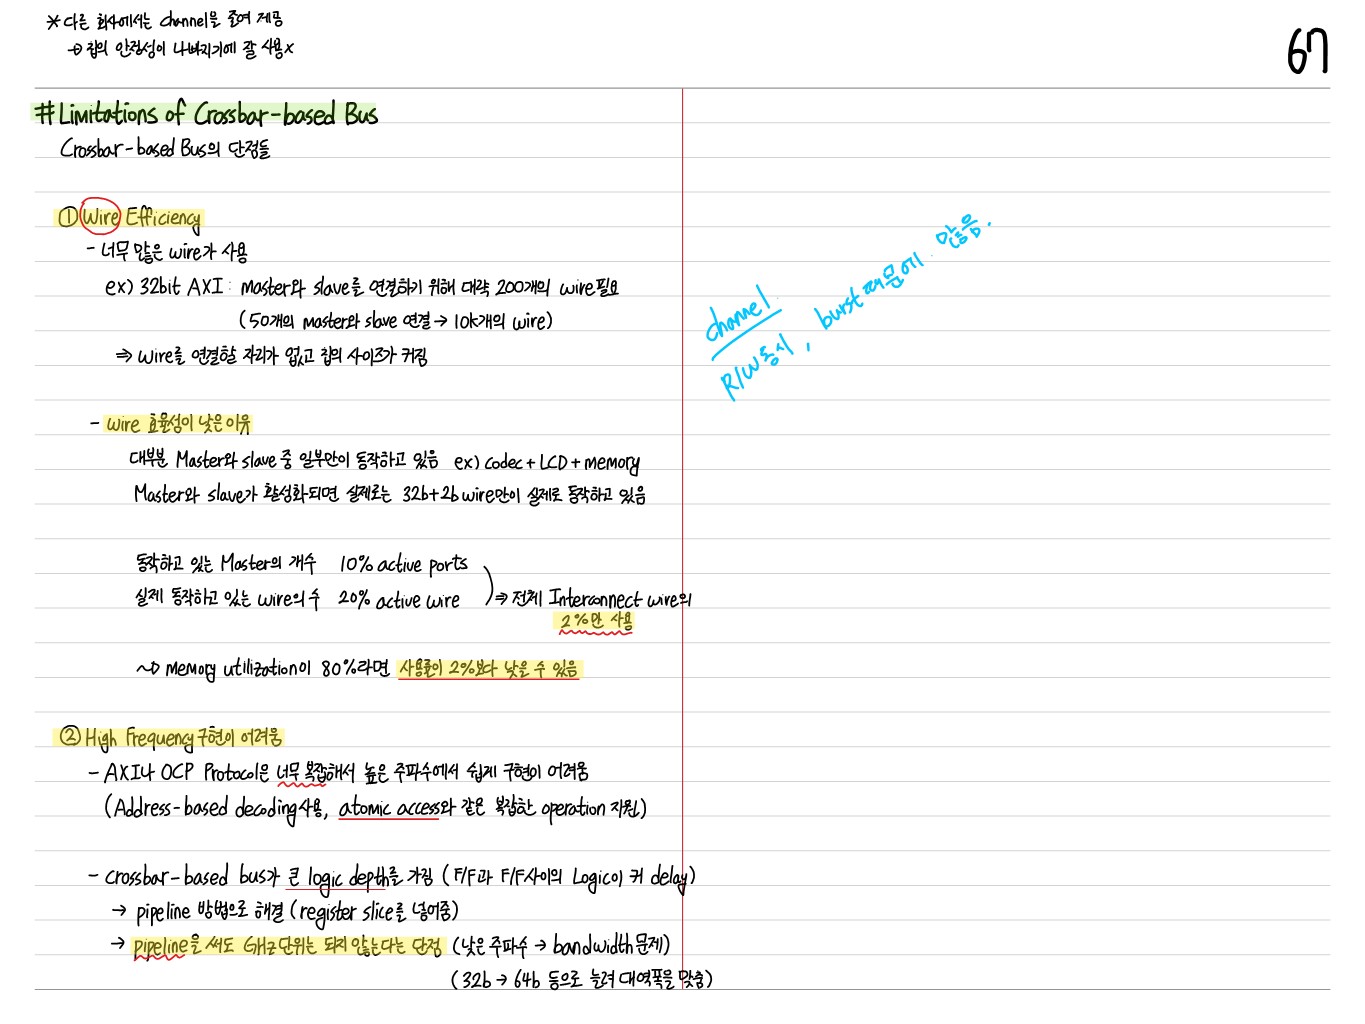 * 다른 회사에서는 channel을 줄여 제공
→ 칩의 안정성이 나빠지기에 잘 사용x
67
# Limitations of Crossbar-based Bus
Crossbar-based Bus의 단점들
① Wire Efficiency
- 너무 많은 wire가 사용
ex) 32bit AXI : master와 slave를 연결하기 위해 대략 200개의 wire 필요
(50개의 master와 slave 연결 → 10k개의 wire)
⇒ wire를 연결할 자리가 없고 칩의 사이즈가 커짐
channel
R/W 동시, burst 때문에 많음.
- wire 효율성이 낮은 이유
대부분 Master와 slave 중 일부만이 동작하고 있음 ex) codec + LCD + memory
Master와 slave가 활성화되면 실제로는 32b+2b wire만이 실제로 동작하고 있음
동작하고 있는 Master의 개수 10% active ports
실제 동작하고 있는 wire의 수 20% active wire ⇒ 전체 Interconnect wire의
2%만 사용
~> memory utilization이 80%라면 사용률이 2%보다 낮을 수 있음
② High Frequency 구현이 어려움
- AXI나 OCP Protocol은 너무 복잡해서 높은 주파수에서 쉽게 구현이 어려움
(Address-based decoding 사용, atomic access와 같은 복잡한 operation 지원)
- crossbar-based bus가 큰 logic depth를 가짐 (F/F과 F/F사이의 Logic이 커 delay)
→ pipeline 방법으로 해결 (register slice를 넣어줌)
→ pipeline을 써도 GHz 단위는 되지 않는다는 단점 (낮은 주파수 → bandwidth 문제)
(32b → 64b 등으로 늘려 대역폭을 맞춤)